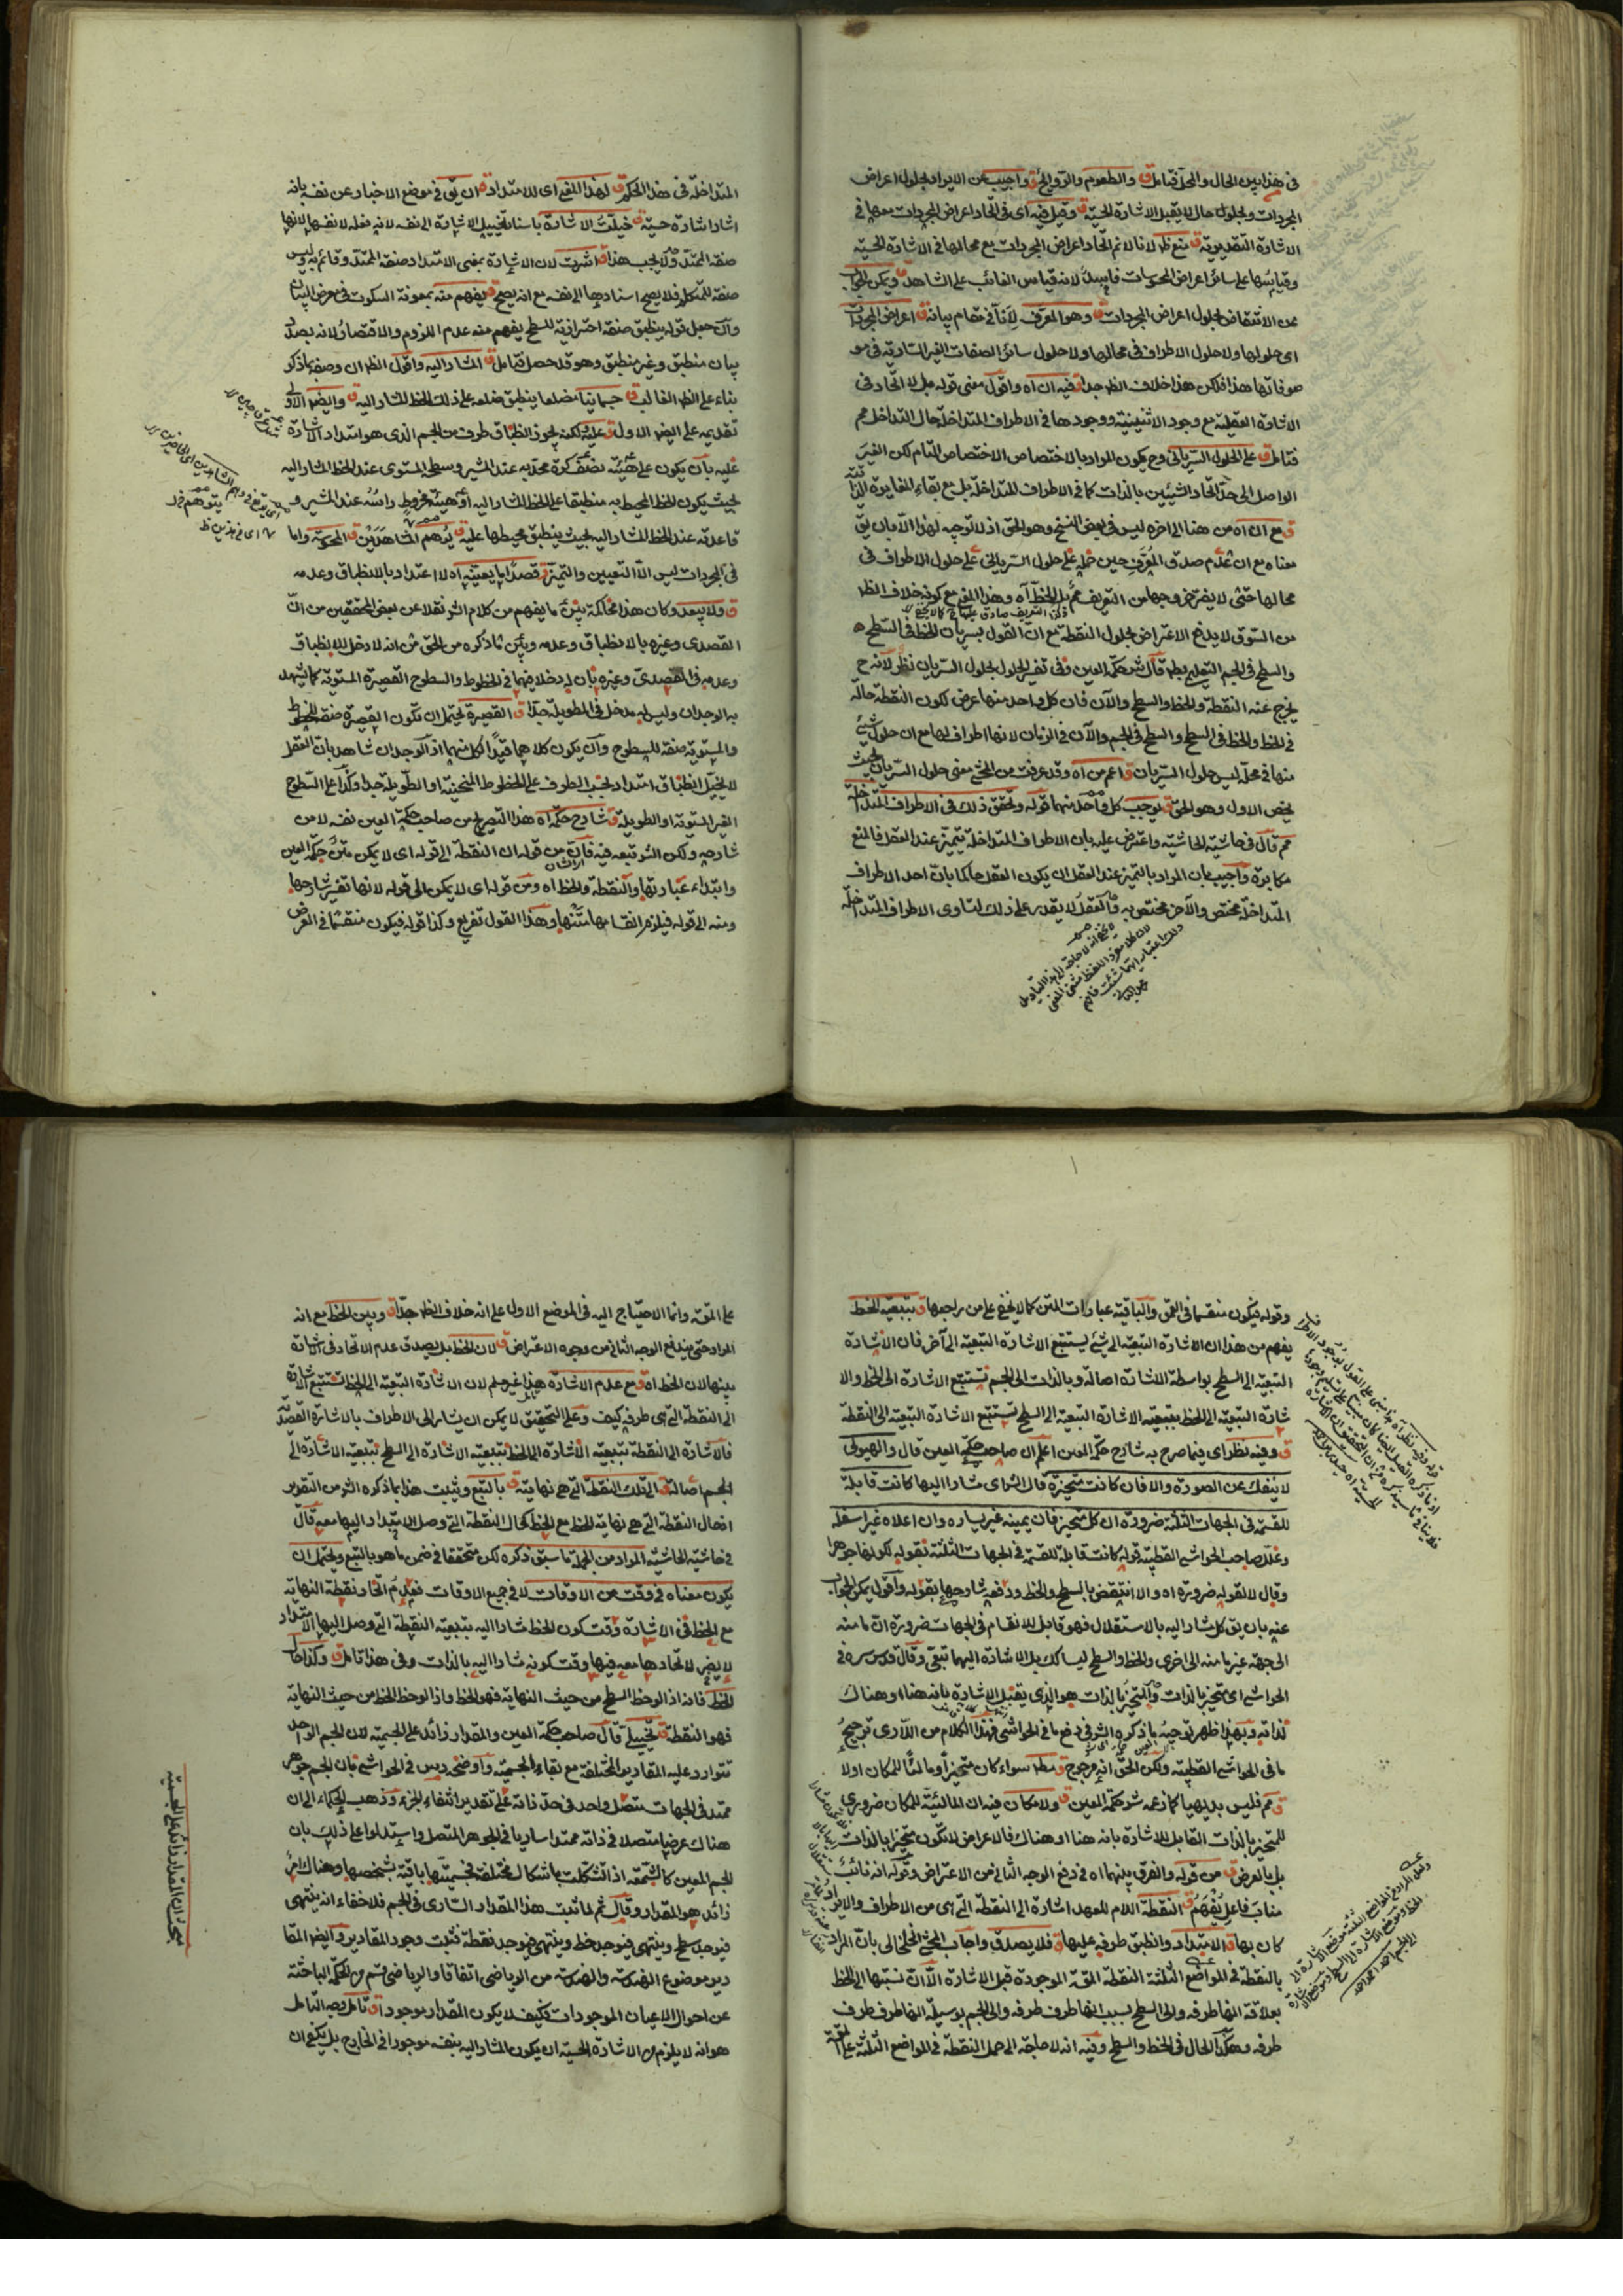 في هذا بين الحال والمحل فتامل ق والطعوم والروايح ق واجيب عن الايراد بحلول اعراض
المجردات وبحلول حال لا يقبل الاشارة الحسية ق وقيل فيه اى في اتحاد اعراض المجردات معها في
الاشارة التقديرية ق منع ظ لانا لا نم اتحاد اعراض المجردات مع محالها في الاشارة الحسية
وقياسها على سائر اعراض المحسوسات فاسد لانه قياس الغائب على الشاهد ق ويمكن الجواب
عن الانتقاض بحلول اعراض المجردات ق وهو المعرف لانا في مقام بيانه ق اعراض المجردات
اى حلولها ولا حلول الاطراف في محالها ولا حلول سائر الصفات الغير السارية في مو
صوفاتها هذا فلكن هذا خلاف الظ جدا ق فيه ان اه واقول معنى قوله بل لا اتحاد في
الاشارة العقلية مع وجود الاثنينية ووجودها في الاطراف المتداخلة حال التداخل مم
فتامل ق على الحلول السرياني وح يكون المراد بالاختصاص الاختصاص التام لكن الغير
الواصل الى حد اتحاد الشيئين بالذات كما في الاطراف المتداخلة بل مع بقاء المغايرة الذاتية
ق مع ان اه من هنا الى اخره ليس في بعض النسخ وهو الحق اذ لا توجيه لهذا الا بان يق
معناه مع ان عدم صدق المعرف حين حمله على حلول السرياني على حلول الاطراف في
محالها حتى لا يضر خروجها من التعريف مم بل الخط آه وهذا المنع مع كونه خلاف الظ
من السوق لا يدفع الاعتراض بحلول النقطة مع ان القول بسريان الخط في السطح
والسطح في الجسم التعليمي بط قال شر حكمة العين وفي تفسير الحلول بحلول السريان نظر لانه ح
يخرج عنه النقطة والخط والسطح والآن فان كل واحد منها عرض لكون النقطة حالة
في الخط والخط في السطح والسطح في الجسم والآن في الزمان لانها اطراف لها مع ان حلول شيئ
منها في محله ليس حلول السريان ق اعم من اه وقد عرفت من المحشى معنى حلول السريان بحيث
يخص الاول وهو الحق ق يوجب كل واحد منهما قوله وتحقق ذلك في الاطراف المتداخلة
مم قال في حاشية الحاشية واعترض عليه بان الاطراف المتداخلة متميزة عند العقل فالمنع
مكابرة واجيب بان المراد بالتميز عند العقل ان يكون العقل حاكما بان احد الاطراف
المتداخلة مختص والآخر مختص به والعقل لا يقدر على ذلك لتساوى الاطراف المتداخلة
المتداخلة في هذا الحكم ق لهذا المعنى اى للامتداد ق ان يق في موضع الاخبار عن نفسه بانه
اشار اشارة حسية ق خيلت الاشارة باسناد تخييل الاشارة الى نفسه لانه فعله لا نفسها لانها
صفة الممتد ولا يجب هذا ق اشرت لان الاشارة بمعنى الامتداد صفة الممتد وقائم به وليس
صفة للمتكلم فلا يصح اسنادها الى نفسه مع انه يصح ق يفهم منه بمعونة السكوت في معرض البيان
وان جعل قوله ينطبق صفة احترازية للسطح يفهم منه عدم اللزوم والاقتصار لانه بصدد
بيان منطبق وغير منطبق وهو قد حصل فتامل ق المشار اليه واقول الظ ان وصفه بما ذكر
بناء على الظ الغالب ق جسمانيا مضلعا ينطبق ضلعه على ذلك الخط المشار اليه ق وايضا الاولى
تقديمه على ايضا الاول ق عليه ولكنه يجوز انطباق طرف من الجسم الذى هو امتداد الاشارة
عليه بان يكون على هيئة نصف كرة محدبه عند المشير وسطحه المستوى عند الخط المشار اليه
بحيث يكون الخط المحيط به منطبقا على الخط المشار اليه او هيئة مخروط راسه عند المشير و
قاعدته عند الخط المشار اليه بحيث ينطبق محيطها عليه ق يوهم الشاهدين ق المحسوسة واما
في المجردات ليس الا التعيين والتميز ق قصدا بعينه اه لا اعتداد بالانطباق وعدمه
ق ولا يبعد وكان هذا محاكمة بين ما يفهم من كلام الشر نقلا عن بعض المحققين من ان
القصدى وغيره بالانطباق وعدمه وبين ما ذكره من الحق من انه لا دخل للانطباق
وعدمه في القصدى وغيره بان له دخلا فيهما في الخطوط والسطوح القصيرة المستوية كما يشهد
به الوجدان وليس له مدخل في الطويلة جدا ق القصيرة يحتمل ان تكون القصيرة صفة للخطوط
والمستوية صفة للسطوح وان يكون كلاهما قيدا لكل منهما اذ الوجدان شاهد بان العقل
لا يخيل انطباق امتداد بحسب الطرف على الخطوط المنحنية او الطويلة جدا وكذا على السطوح
الغير المستوية او الطويلة ق شارح حكمة اه هذا التصريح من صاحب حكمة العين نفسه لا من
شارحه ولكن الشر تبعه فيه فان من قوله ان النقطة الى قوله اى لا يمكن متن حكمة العين
وابتداء عبارتها والنقطة والخط اه ومن قوله اى لا يمكن الى قوله لانها تفسير شارحها
ومنه الى قوله فيلزم انقسامها متنها وهذا القول تفريع وكذا قوله فيكون منقسما في العرض
وقوله فيكون منقسما في العمق والباقية عبارات المتن كما لا يخفى على من راجعها ق بتبعية الخط
يفهم من هذا ان الاشارة التبعية الى شيئ يستتبع الاشارة التبعية الى آخر فان الاشارة
التبعية الى السطح بواسطة الاشارة اصالة وبالذات الى الجسم تستتبع الاشارة الى الخط والا
شارة التبعية الى الخط بتبعية الاشارة التبعية الى السطح تستتبع الاشارة التبعية الى النقطة
ق وفيه نظر اى فيما صرح به شارح حكمة العين اعلم ان صاحب حكمة العين قال والهيولى
لا ينفك عن الصورة والا فان كانت متحيزة قال الشر اى مشارا اليها كانت قابلة
للقسمة في الجهات الثلثة ضرورة ان كل متحيز فان يمينه غير يساره وان اعلاه غير اسفله
وعلله صاحب الحواشى القطبية قوله كانت قابلة للقسمة في الجهات الثلثة بقوله لكونها جوهرا
وقال لا لقوله ضرورة اه والا انتقض بالسطح والخط ودفعه شارحها بقوله واقول يمكن الجواب
عنه بان يق كل مشار اليه بالاستقلال فهو قابل للانقسام في الجهات ضرورة ان ما منه
الى جهة غير ما منه الى اخرى والخط والسطح ليسا كك بل الاشارة اليهما تبعى وقال قدس سره في
الحواشى اى متحيز بالذات والمتحيز بالذات هو الذى يقبل الاشارة بانه هنا وهناك
لذاته وبهذا ظهر توجيه ما ذكره الشر في دفع ما في الحواشى فهذا الكلام من الدارى ترجيح
ما في الحواشى القطبية ولكن الحق انه مرجوح ق مطلقا سواء كان متحيزا او مالئا للمكان اولا
ق مم فليس بديهيا كما زعمه شر حكمة العين ق ولا مكان فيه ان المالئية للمكان ضرورى
للمتحيز بالذات القابل للاشارة بانه هنا او هناك فالاعراض لا تكون متحيزا بالذات
بل بالعرض ق من قوله والفرق بينهما اه في دفع الوجه الثاني من الاعتراض وقوله انه نائب
مناب فاعل يفهم ق النقطة اللام للعهد اشارة الى النقطة التى هى من الاطراف والا
كان بها ق الامتداد وانطبق طرفه عليها ق فلا يصدق واجاب المحشى الخلخالى بان المراد
بالنقطة في المواضع الثلثة النقطة المحققة الموجودة قبل الاشارة الا ان نسبتها الى الخط
بعلاقة انها طرفه والى السطح بسبب انها طرف طرفه والى الجسم بوسيلة انها طرف طرف
طرفه وهكذا الحال في الخط والسطح وفيه انه لا حاجة الى حمل النقطة في المواضع الثلثة على المحققة
على المحققة وانما الاحتياج اليه في الموضع الاول على انه خلاف الظ جدا ق وبين الخط مع انه
المراد حتى يندفع الوجه الثاني من وجوه الاعتراض ق لان الخط بل يصدق عدم الاتحاد في اشارة
بينها لان الخط اه ق مع عدم الاشارة هذا غير مسلم لان الاشارة التبعية الى الخط تستتبع الاشارة
الى النقطة التى هى طرفه كيف وعلى التحقيق لا يمكن ان يشار الى الاطراف بالاشارة القصدية
فالاشارة الى النقطة بتبعية الاشارة الى الخط بتبعية الاشارة الى السطح بتبعية الاشارة الى
الجسم اصالة ق الى تلك النقطة التى هى نهايته ق بالتبع ويثبت هذا بما ذكره الشر من التقرير
اذ حال النقطة التى هى نهاية للخط مع الخط كحال النقطة التى وصل الامتداد اليها معه قال
في حاشية الحاشية المراد من الجملة ما سبق ذكره لكن متحققا في ضمن ما هو بالتبع ويحتمل ان
يكون معناه في وقت من الاوقات لا في جميع الاوقات فعدم اتحاد نقطة النهاية
مع الخط في الاشارة وقت كون الخط مشارا اليه بتبعية النقطة التى وصل اليها الامتداد
لا يضر لاتحادها معه فيها وقت كونه مشارا اليه بالذات وفى هذا تامل ق وكذا حال
الخط فانه اذا لوحظ السطح من حيث النهاية فهو الخط واذا لوحظ الخط من حيث النهاية
فهو النقطة ق تخييلي قال صاحب حكمة العين والمقدار زائد على الجسمية لان الجسم الواحد
تتوارد عليه المقادير المختلفة مع بقاء الجسمية واوضحه في الحواشى بان الجسم جوهر
ممتد في الجهات متصل واحد في حد ذاته على تقدير انتفاء الجزء وذهب الحكماء الى ان
هناك عرضا متصلا في ذاته ممتدا ساريا في الجوهر المتصل واستدلوا على ذلك بان
الجسم المعين كالشمعة اذا تشكلت باشكال مختلفة فجسميتها باقية بشخصها وهناك امر
زائد هو المقدار وقال ثم لما ثبت هذا المقدار السارى في الجسم فلا خفاء انه ينتهى
فيوجد سطح وينتهى فيوجد خط وينتهى فيوجد نقطة فثبت وجود المقادير وايضا المقا
دير موضوع الهندسة والهندسة من الرياضى اتفاقا والرياضى قسم من الحكمة الباحثة
عن احوال الاعيان الموجودات فكيف لا يكون المقدار موجودا ق تامل وجه التامل
هو انه لا يلزم من الاشارة الحسية ان يكون المشار اليه بنفسه موجودا في الخارج بل يكفى ان
مبحث ان المقدار زائد على الجسمية